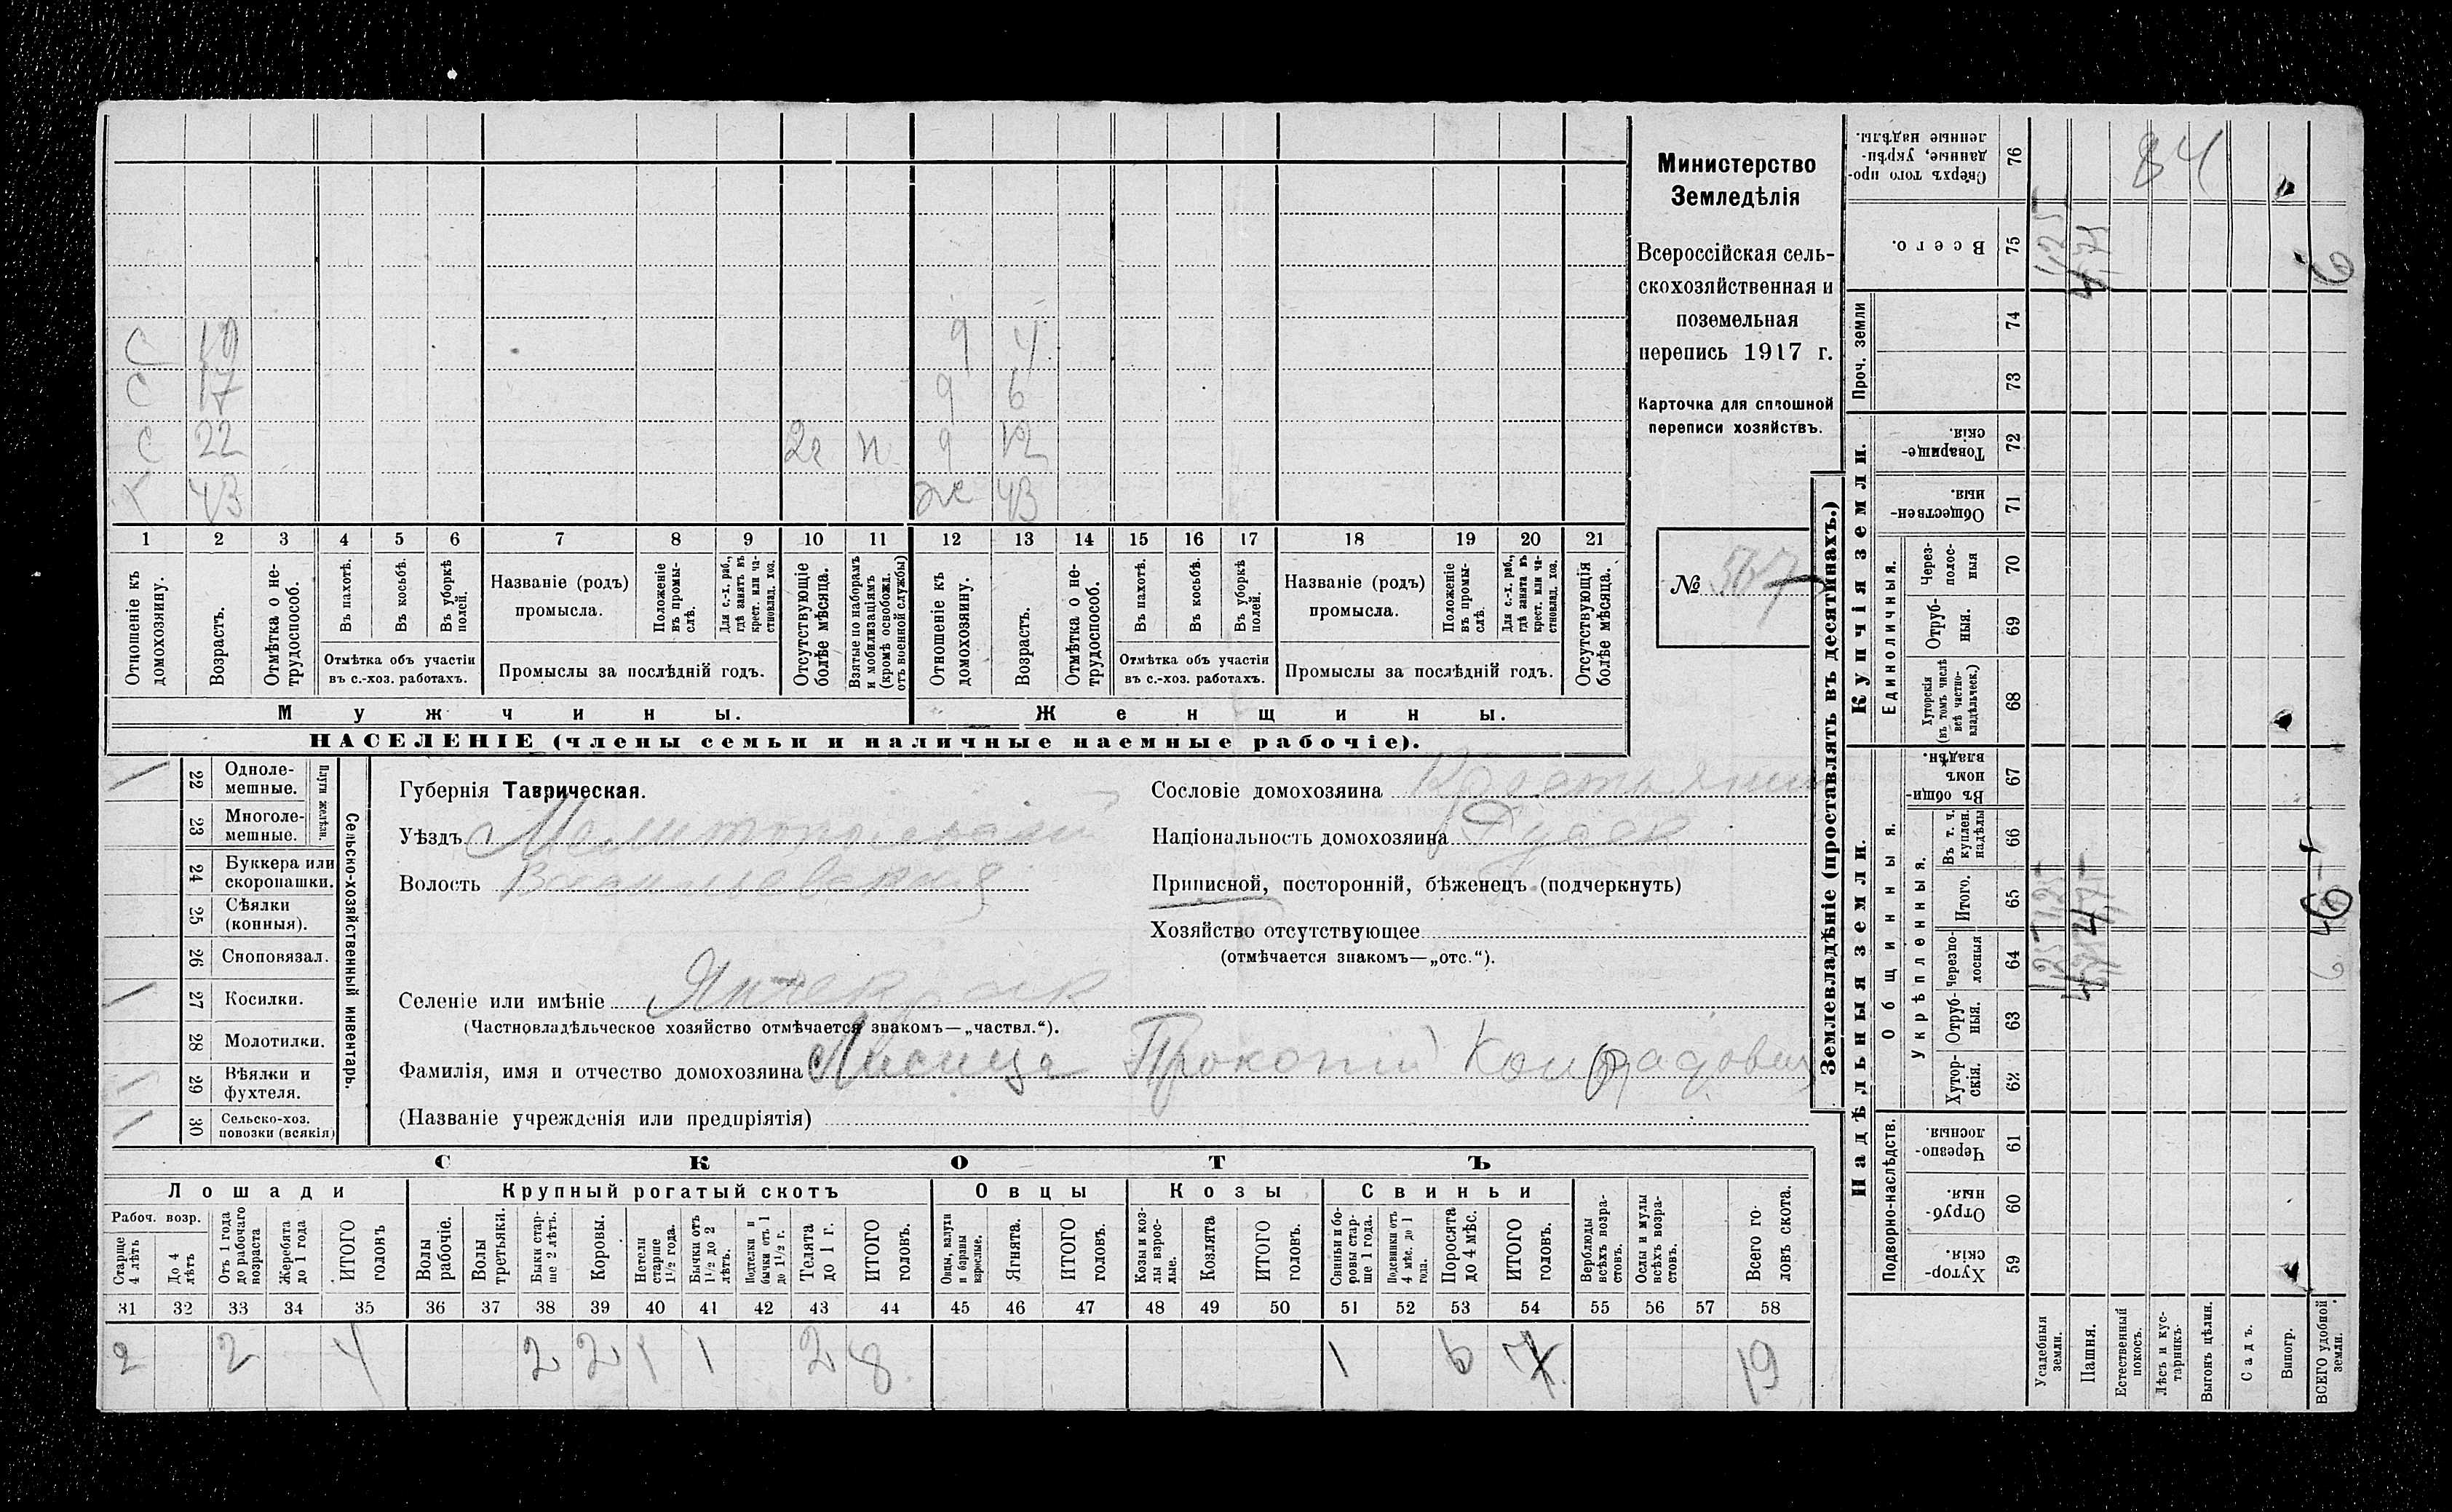 С 19 9 4
С 17 9 6
С 22 2г п 9 12
Х 43 Ж 43
1 2 3 4 5 6 7 8 9 10 11 12 13 14 15 16 17 18 19 20 21
Отношеніе къ домохозяину.
Возрастъ.
Отмѣтка о не-трудоспособ.
Въ пахотѣ.
Въ косьбѣ.
Въ уборкѣ полей.
Отмѣтка объ участіи
въ с.-хоз. работахъ.
Названіе (родъ)
промысла.
Положеніе въ промы-слѣ.
Для с.-х. раб., гдѣ занятъ въ крест. или ча-стновлад. хоз.
Промыслы за послѣдній годъ.
Отсутствующіе болѣе мѣсяца.
Взятые по наборамъ и мобилизаціямъ (кромѣ освобожд. отъ военной службы)
Отношеніе къ домохозяину.
Возрастъ.
Отмѣтка о не-трудоспособ.
Въ пахотѣ.
Въ косьбѣ.
Въ уборкѣ полей.
Отмѣтка объ участіи
въ с.-хоз. работахъ.
Названіе (родъ)
промысла.
Положеніе въ промы-слѣ.
Для с.-х. раб., гдѣ занята въ крест. или ча-стновлад. хоз.
Промыслы за послѣдній годъ.
Отсутствующія болѣе мѣсяца.
Мужчины. Женщины.
НАСЕЛЕНІЕ (члены семьи и наличные наемные рабочіе).
Министерство
Земледѣлія
Всероссійская сель-
скохозяйственная и
поземельная
перепись 1917 г.
Карточка для сплошной
переписи хозяйствъ.
№ 567
22 Одноле-мешные.
23 Многоле-мешные.
Плуги желѣзн.
24 Буккера или скоропашки.
25 Сѣялки (конныя).
26 Сноповязал.
27 Косилки.
28 Молотилки.
29 Вѣялки и фухтеля.
30 Сельско-хоз. повозки (всякія)
Сельско-хозяйственный инвентарь.
Губернія Таврическая.
Уѣздъ Мелитопольский
Волость Васильевская
Селеніе или имѣніе Янчекрак
(Частновладѣльческое хозяйство отмѣчается знакомъ—„частвл.“).
Фамилія, имя и отчество домохозяина Лисица Прокопій Кондрадович
(Названіе учрежденія или предпріятія)
Сословіе домохозяина Крестьянин
Національность домохозяина Русск
Приписной, посторонній, бѣженецъ (подчеркнуть)
Хозяйство отсутствующее
(отмѣчается знакомъ—„отс.“).
СКОТЪ
Лошади Крупный рогатый скотъ Овцы Козы Свиньи
Рабоч. возр.
Старше 4 лѣтъ
До 4 лѣтъ
Отъ 1 года до рабочаго возраста
Жеребята до 1 года
ИТОГО головъ
Волы рабочіе.
Волы третьяки.
Быки стар-ше 2 лѣтъ.
Коровы.
Нетели старше 1½ года.
Бычки отъ 1½ до 2 лѣтъ.
Подтелки и бычки отъ 1 до 1½ г.
Телята до 1 г.
ИТОГО головъ.
Овцы, валухи и бараны взрослые.
Ягнята.
ИТОГО головъ.
Козы и коз-лы взрос-лые.
Козлята
ИТОГО головъ.
Свиньи и бо-ровы стар-ше 1 года.
Подсвинки отъ 4 мѣс. до 1 года.
Поросята до 4 мѣс.
ИТОГО головъ.
Верблюды всѣхъ возра-стовъ.
Ослы и мулы всѣхъ возра-стовъ.
Всего го-ловъ скота.
31 32 33 34 35 36 37 38 39 40 41 42 43 44 45 46 47 48 49 50 51 52 53 54 55 56 57 58
2 2 4 2 2 1 1 2 8 1 6 7 19
Землевладѣніе (проставлять въ десятинахъ.)
Надѣльныя земли. Купчія земли. Проч. земли
Подворно-наслѣдств.
Общинныя.
Укрѣпленныя.
Единоличныя.
59 Хутор-скія.
60 Отруб-ныя.
61 Черезпо-лосныя
62 Хутор-скія.
63 Отруб-ныя.
64 Черезпо-лосныя
65 Итого.
66 Въ т. ч. куплен. надѣлы
67 Въ общи-номъ владѣн.
68 Хуторскія (въ томъ числѣ всѣ частно-владѣльческ.)
69 Отруб-ныя.
70 Через-полос-ныя
71 Обществен-ныя.
72 Товарище-скія.
73
74
75 Всего.
76 Сверхъ того про-данные, укрѣп-ленные надѣлы.
Усадебныя земли. 1,25 1,25 1,25
Пашня. 4,75 4,75 4,75
Естественный покосъ.
Лѣсъ и кус-тарникъ.
Выгонъ цѣлин.
Садъ.
Виногр.
ВСЕГО удобной земли. 6 6 6
84